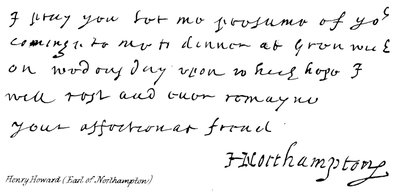 I pray you let me presume of yor
coming to me to dinner at Grenwich
on wedensday upon which hope I
will rest and ever remayne
your affectionat frend
HNorthampton
Henry Howard (Earl of Northampton)